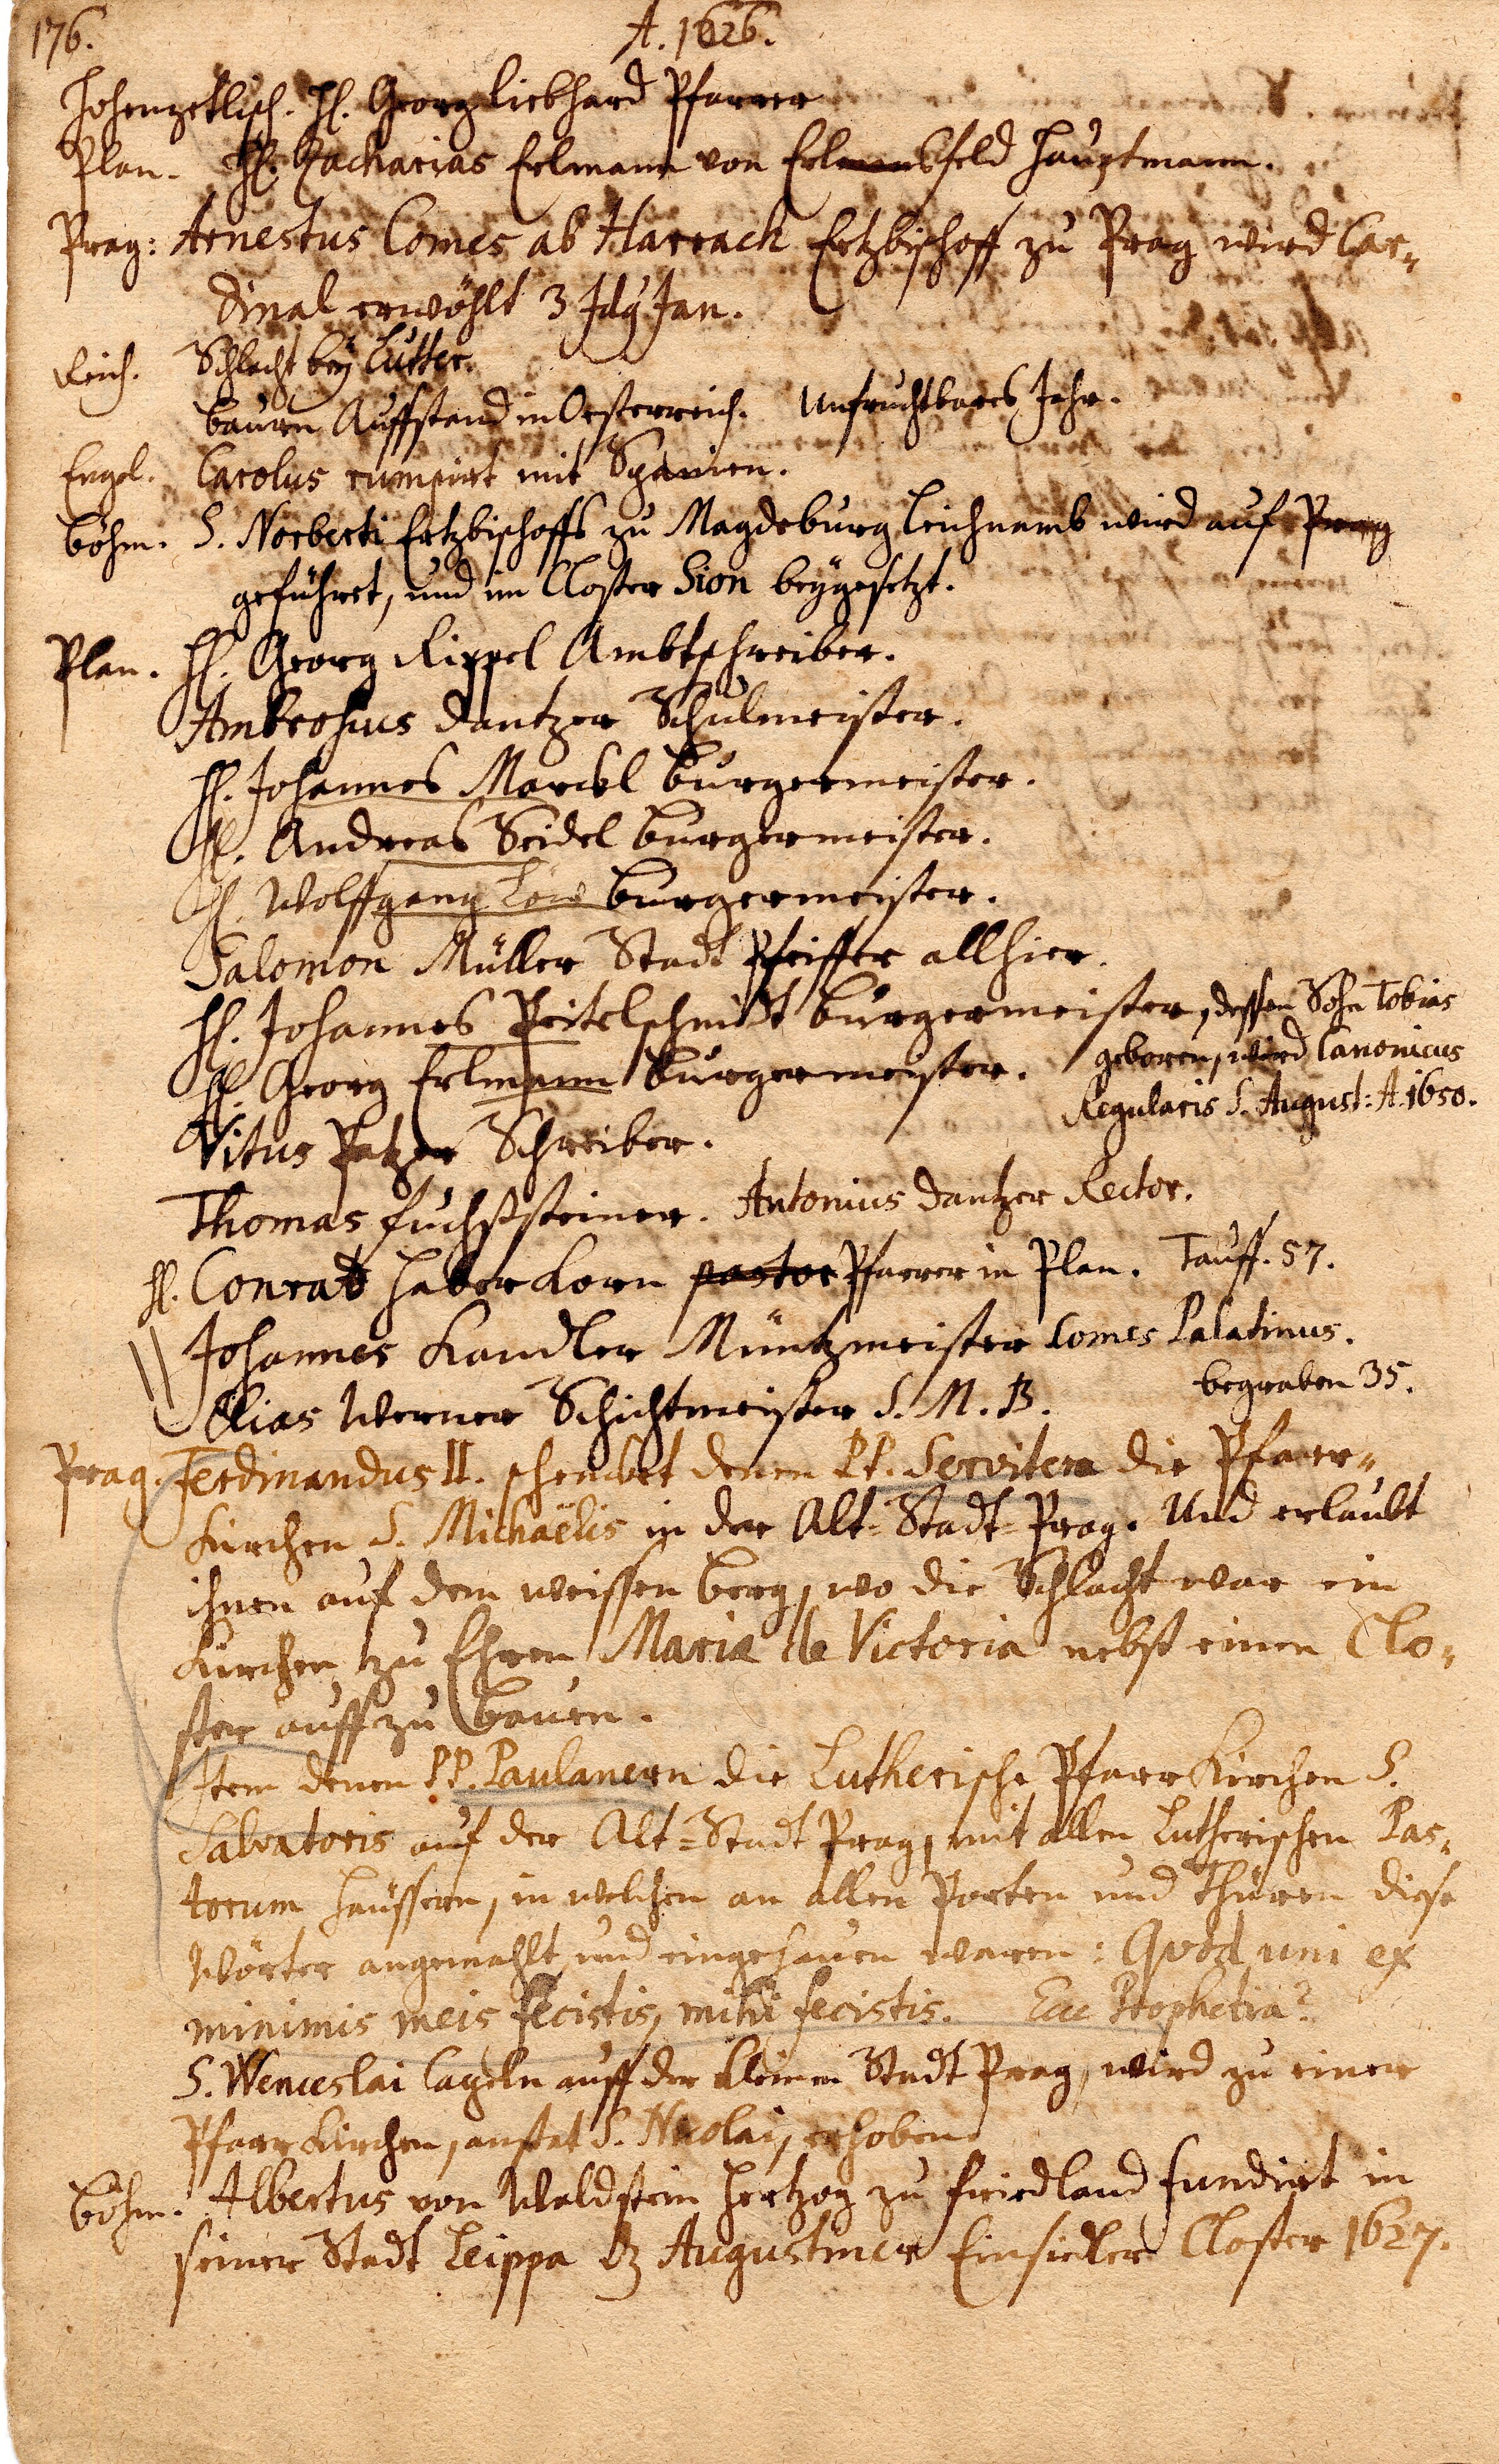 176.
A. 1626.
Hohenzetlisch. H. Georg Liebhard Pfarrer
Plan. H. Zacharias Erlmann von Erlmansfeld Hauptmann.
Prag: Arnestus Comes ab Harrach Ertzbischoff zu Prag wird Car-
dinal erwöhlt 3 Idy Jan.
Reich. Schlacht bey Lutter.
Bauren Auffstand in Oesterreich. Unfruchtbares Jahr.
Engel. Carolus rumpirt mit Spanien.
Böhm. S. Norberti Ertzbischoffs zu Magdeburg Leichnamb wird auf Prag
geführet, und im Closter Sion beygesetzt.
Plan. H. Georg Rippel Ambtschreiber.
Ambrosius Dantzer Schulmeister.
H. Johannes Marckl Burgermeister.
H. Andreas Seidel Burgermeister.
H. Wolffgang Löw Burgermeister.
Salomon Müller Stadt Pfeiffer allhier.
H. Johannes Peitelschmidt Burgermeister, dessen Sohn Tobias
H. Georg Erlmann Burgermeister. geboren, wird Canonicus
Regularis S. August: A. 1650.
Vitus Patzer Schreiber.
Thomas Fuchssteiner. Antonius Dantzer Rector.
H. Conrad Haberkorn pastor Pfarrer in Plan. Tauff. 57.
Johannes Kandler Müntzmeister Comes Palatinus.
Elias Werner Schichtmeister S. M. B. begraben 35.
Prag. Ferdinandus II. schencket denen PP. Serviten die Pfarr-
Kirchen S. Michaëlis in der Alt-Stadt-Prag. Und erlaubt
ihnen auf dem weissen Berg, wo die Schlacht war ein
Kirchen zu Ehren Mariæ de Victoria nebst einen Clo-
ster auffzu bauen.
Item denen PP. Paulanern die Lutherische Pfarr Kirchen S.
Salvatoris auf der Alt-Stadt Prag, mit allen Lutherischen Pas-
torum Häussern, in welchen an allen Porten und Thüren diese
Wörter angemahlt und eingehauen waren: Quod uni ex
minimis meis fecistis, mihi fecistis. Ecce Prophetia?
S. Wenceslai Capeln auff der kleinen Stadt Prag, wird zu einer
Pfarr Kirchen, anstat S. Nicolai, erhoben.
Böhm. Albertus von Waldstein Hertzog zu Friedland fundirt in
seiner Stadt Leippa dz Augustiner Einsiedler Closter 1627.